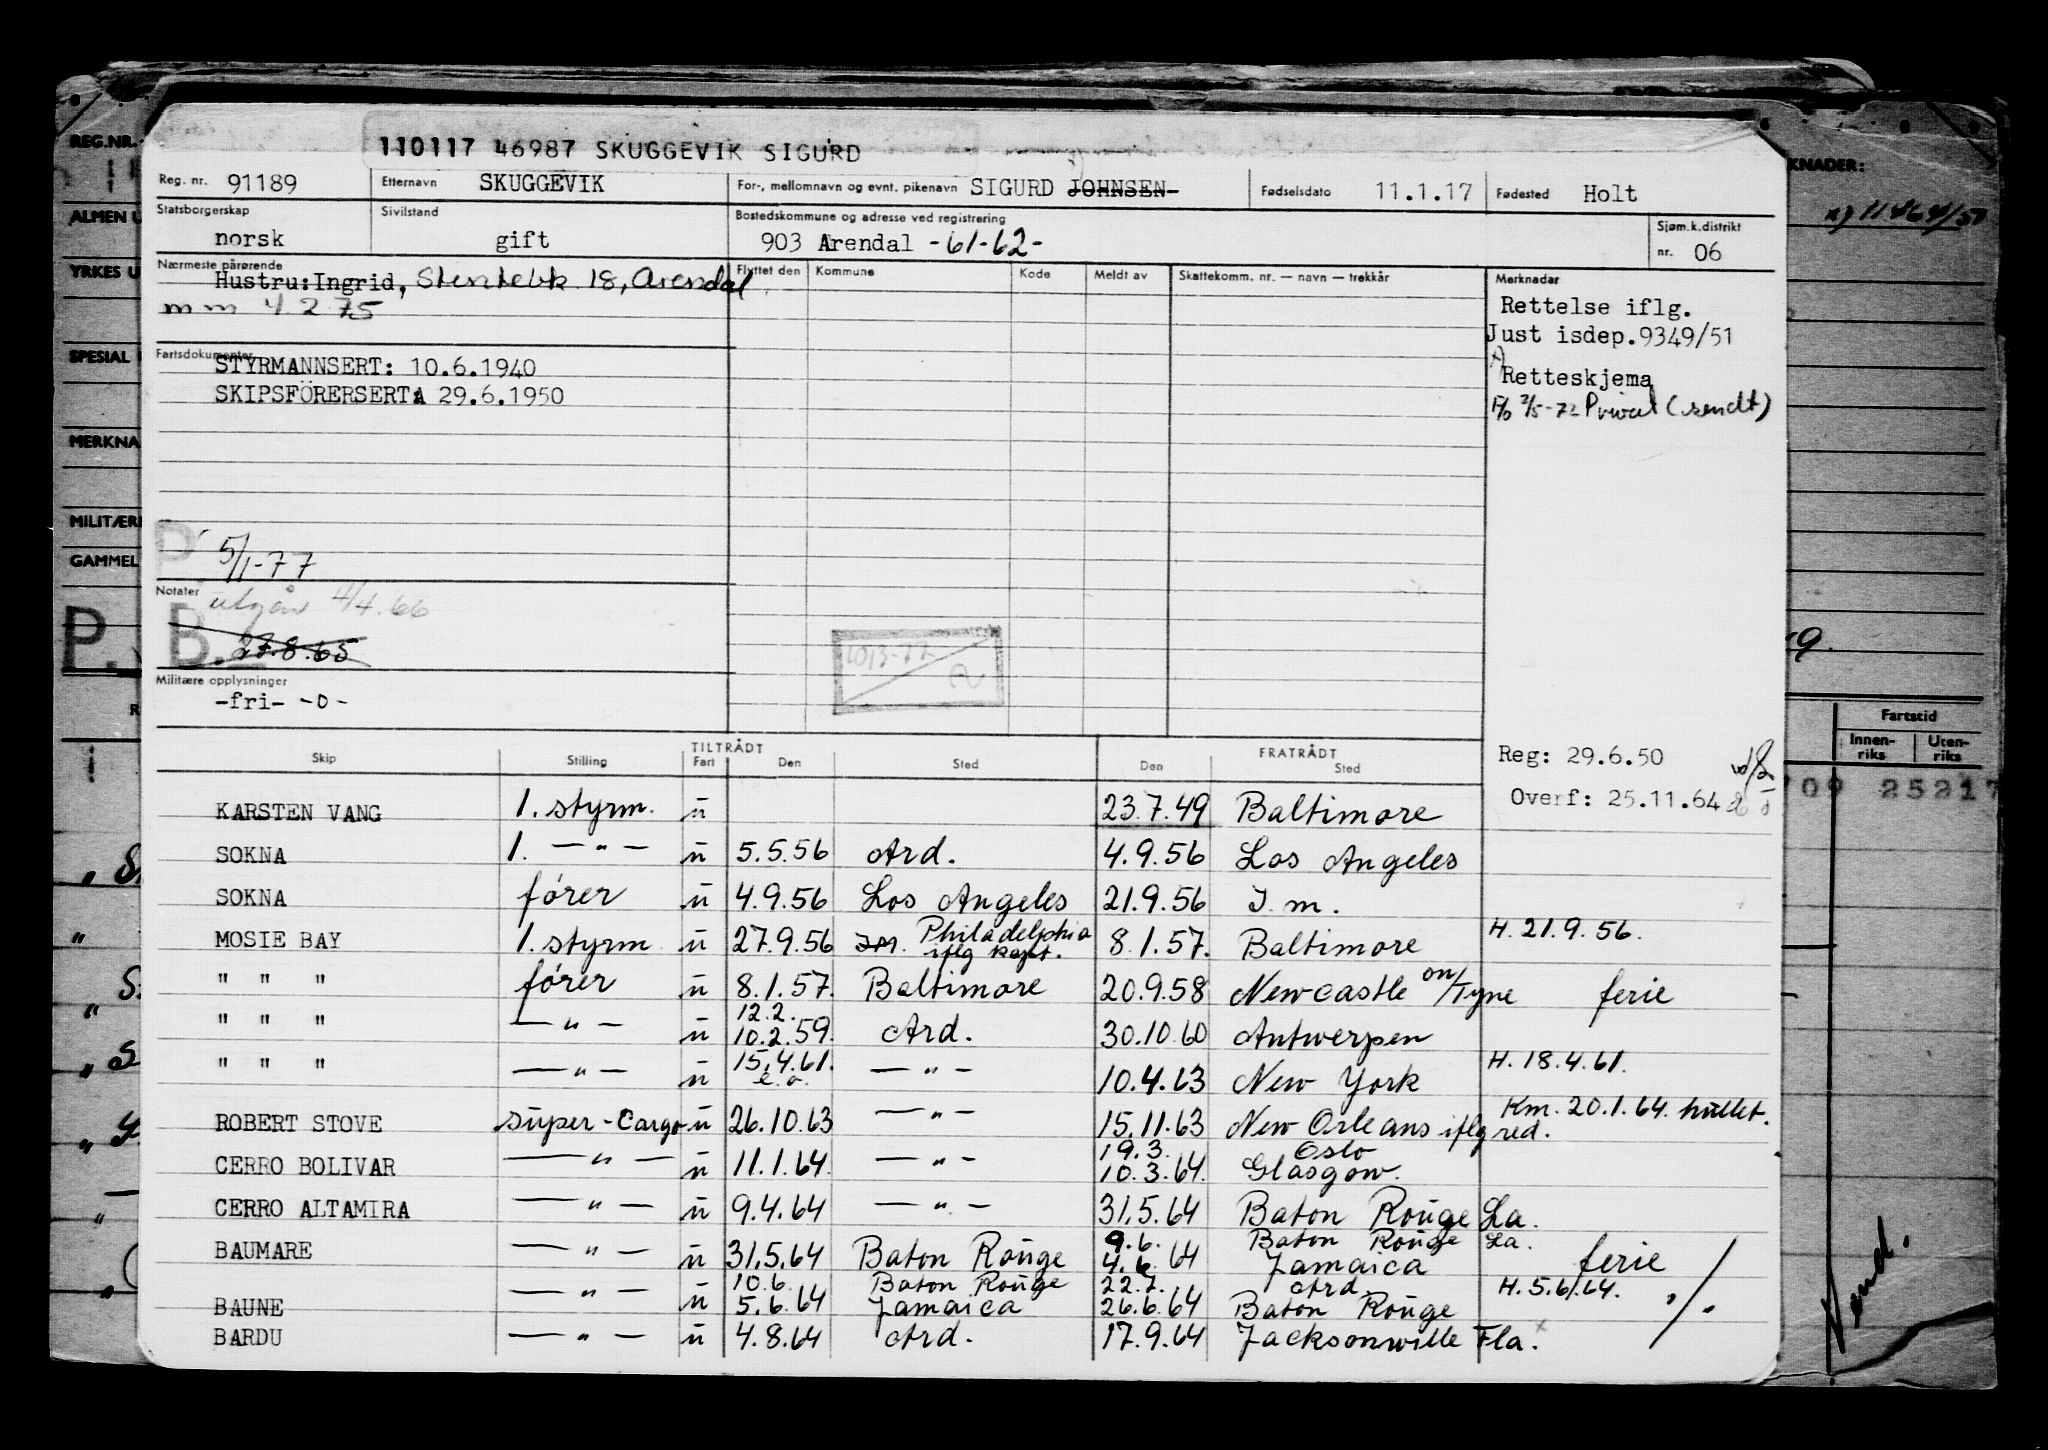 110117 46987 SKUGGEVIK SIGURD
Reg. nr. 91189 Etternavn SKUGGEVIK For-, mellomnavn og evnt. pikenavn SIGURD JOHNSEN Fødselsdato 11.1.17 Fødested Holt
Statsborgerskap norsk Sivilstand gift Bostedskommune og adresse ved registrering 903 Arendal -61-62- Sjøm.k.distrikt nr. 06
Nærmeste pårørende Flyttet den Kommune Kode Meldt av Skattekomm. nr. — navn — trekkår Merknadar
Hustru:Ingrid, Stintebk 18, Arendal
m m 4 2 75
Rettelse iflg.
Just isdep.9349/51
x)
Retteskjema
2/5-72 Privat (sendt)
Fartsdokumenter
STYRMANNSERT: 10.6.1940
SKIPSFÖRERSERT: 29.6.1950
P.
5/1-77
Notater utgår 4/4.66
B. 27.8.65
Militære opplysninger
-fri- -0-
Reg: 29.6.50
Overf: 25.11.64
TILTRÅDT FRATRÅDT
Skip Stilling Fart Den Sted Den Sted
KARSTEN VANG 1. styrm. u 23.7.49 Baltimore
SOKNA 1. —"— u 5.5.56 Ard. 4.9.56 Los Angeles
SOKNA fører u 4.9.56 Los Angeles 21.9.56 I.m.
MOSIE BAY 1. styrm u 27.9.56 I.M. Philadelphia iflg kapt. 8.1.57. Baltimore H. 21.9.56.
" " " fører u 8.1.57. Baltimore 20.9.58 Newcastle on/Tyne ferie
" " " —"— u 12.2. 10.2.59. Ard. 30.10.60 Antwerpen
" " " —"— u 15.4.61. e.o. —"— 10.4.63 New York H. 18.4.61.
ROBERT STOVE super-Cargo u 26.10.63 —"— 15.11.63 New Orleans iflg red. Km. 20.1.64. hullet.
CERRO BOLIVAR —"— u 11.1.64. —"— 19.3. 10.3.64. Oslo Glasgow.
CERRO ALTAMIRA —"— u 9.4.64 —"— 31.5.64 Baton Rouge La.
BAUMARE —"— u 31.5.64 Baton Rouge 9.6. 4.6.64 Baton Rouge La. Jamaica ferie
BAUNE —"— u 10.6. 5.6.64 Baton Rouge Jamaica 22.7. 26.6.64 Ard. Baton Rouge H. 5.6.64. ./.
BARDU —"— u 4.8.64 Ard. 17.9.64 Jacksonville Fla.
REG.NR.
YRKES U
SPESIAL
MERKNA
MILITÆRE
GAMMEL
P.
KNADER:
x) 11464/51
Fartstid
Innen-riks Uten-riks
709 25217